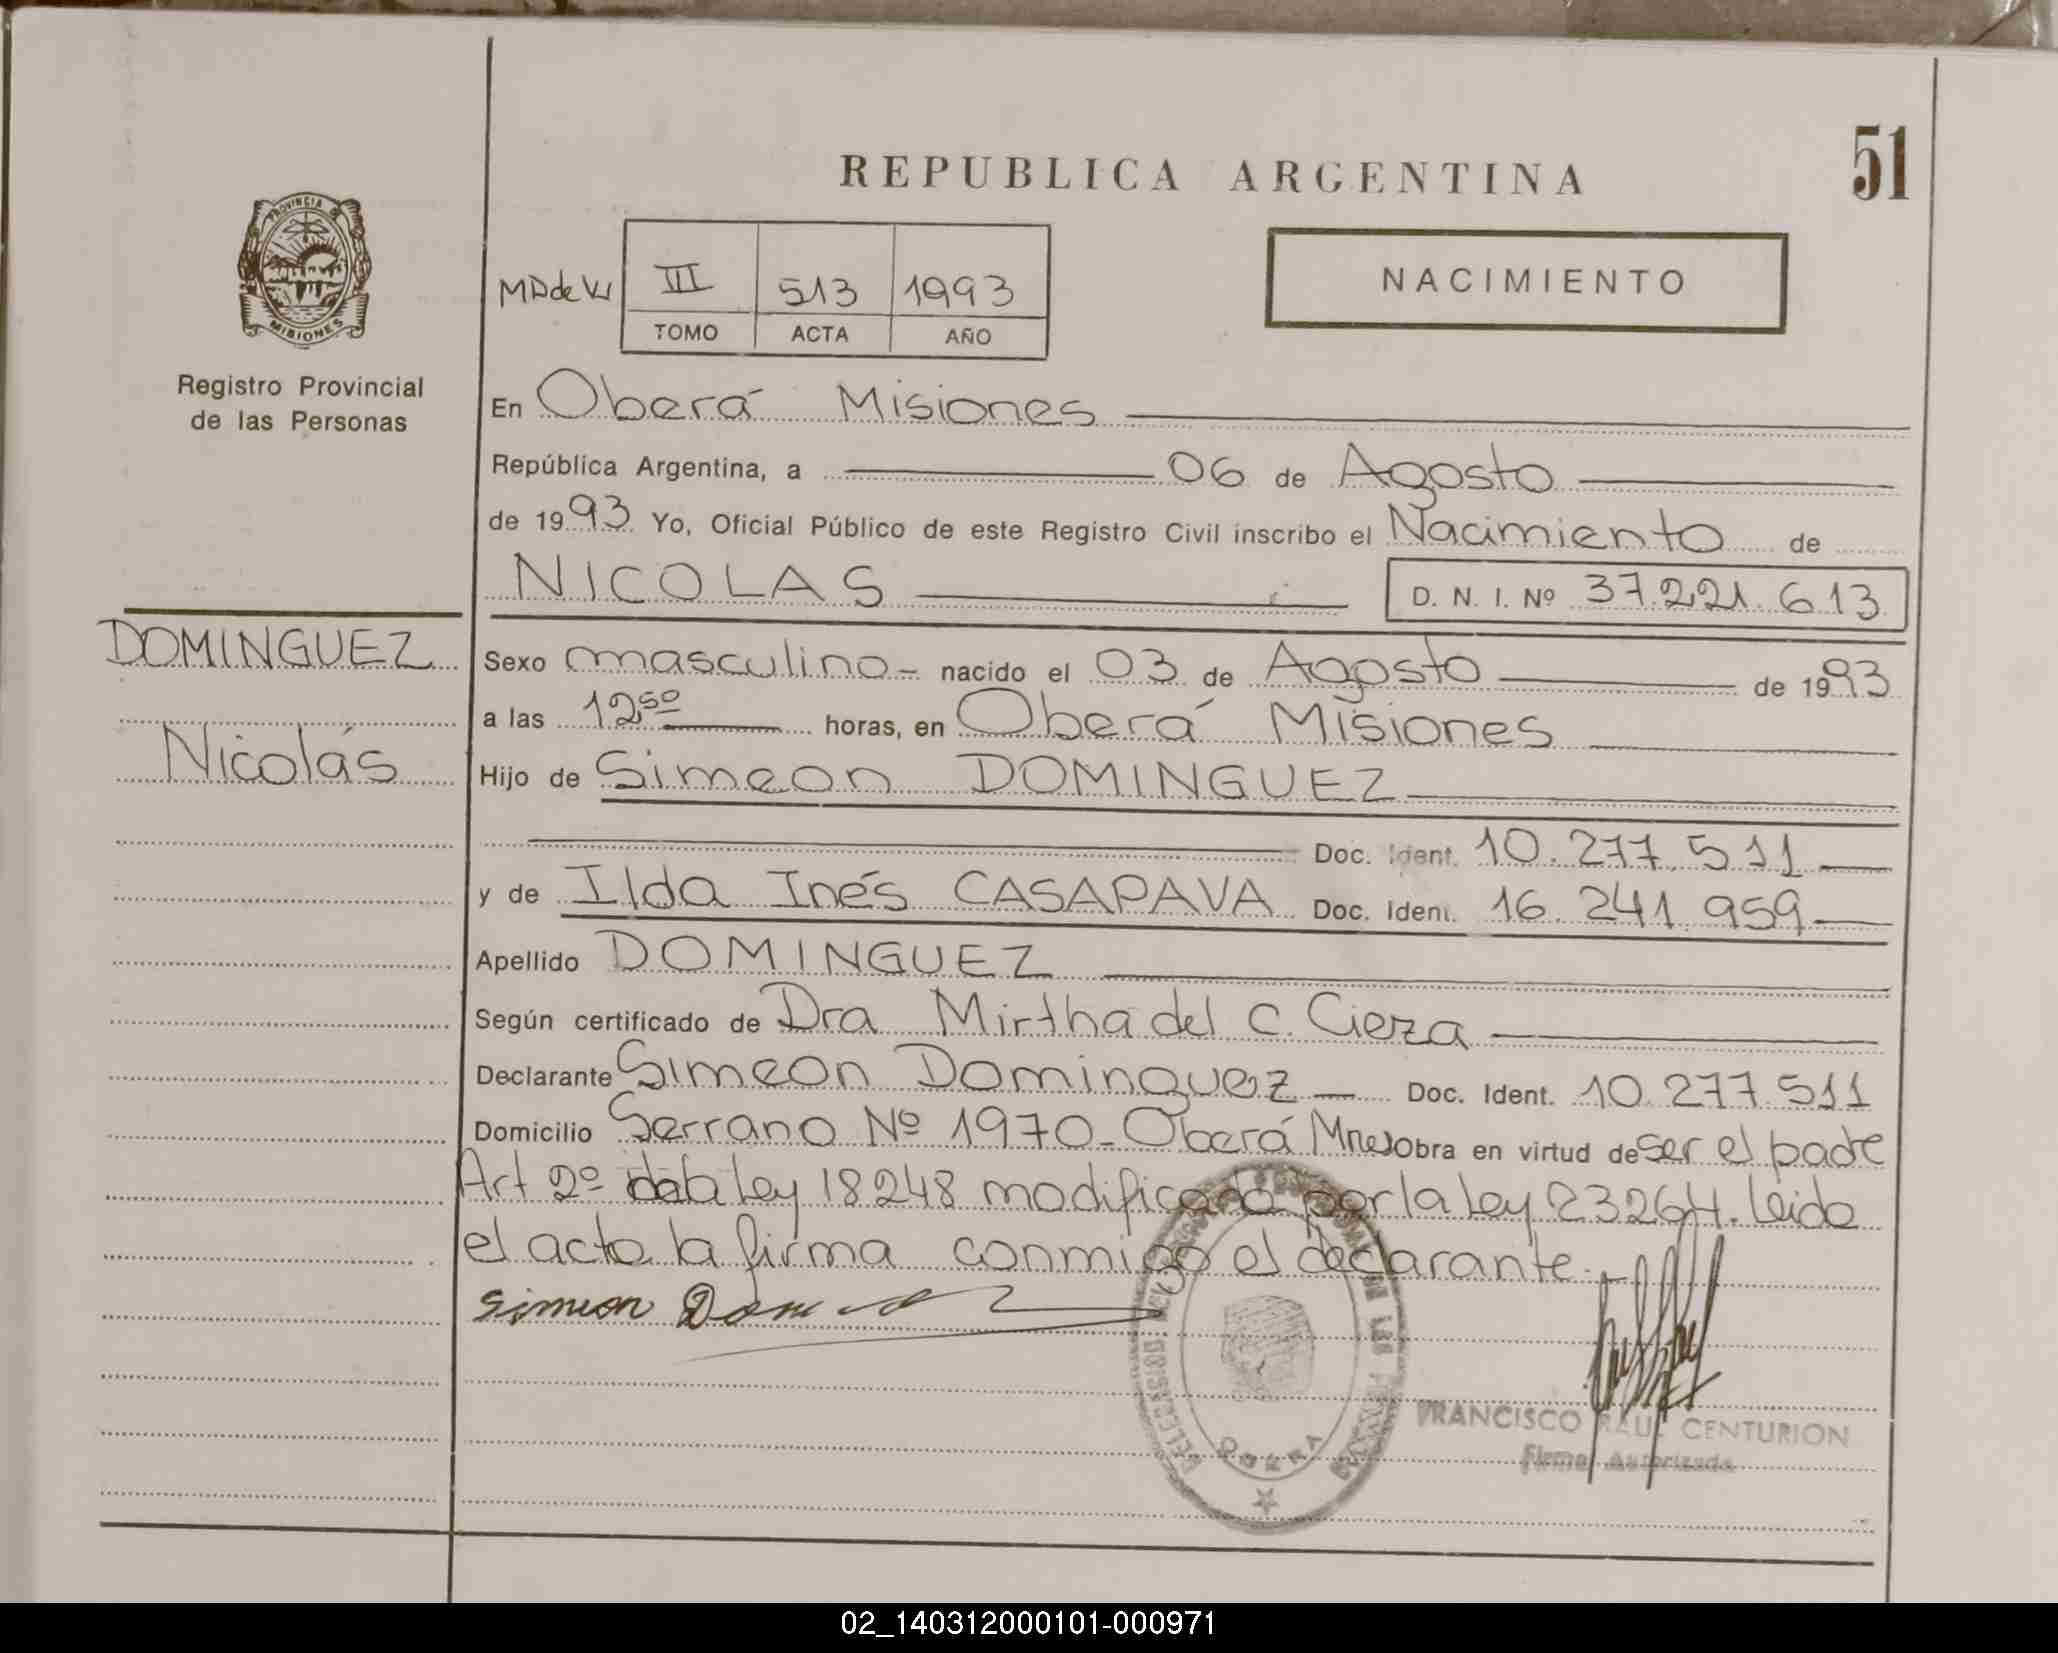 51
REPUBLICA ARGENTINA
PROVINCIA DE
MISIONES
Registro Provincial
de las Personas
III 513 1993
TOMO ACTA AÑO
NACIMIENTO
En Oberá Misiones
República Argentina, a 06 de Agosto
de 1993 Yo, Oficial Público de este Registro Civil inscribo el Nacimiento de
NICOLAS D. N. I. Nº 37.221.613
DOMINGUEZ
Nicolás
Sexo masculino - nacido el 03 de Agosto de 1993
a las 12 50 horas, en Oberá Misiones
Hijo de Simeon DOMINGUEZ
Doc. Ident. 10.277.511
y de Ilda Inés CASAPAVA Doc. Ident. 16.241.959
Apellido DOMINGUEZ
Según certificado de Dra Mirtha del C. Cieza
Declarante Simeon Dominguez Doc. Ident. 10.277.511
Domicilio Serrano Nº 1970-Oberá Mnes Obra en virtud de ser el padre
Art 2º de la Ley 18248 modificado por la Ley 23264. Leida
el acta la firma conmigo el declarante.
Simeon
OBERA
FRANCISCO RAUL CENTURION
Firma Autorizada
02_140312000101-000971